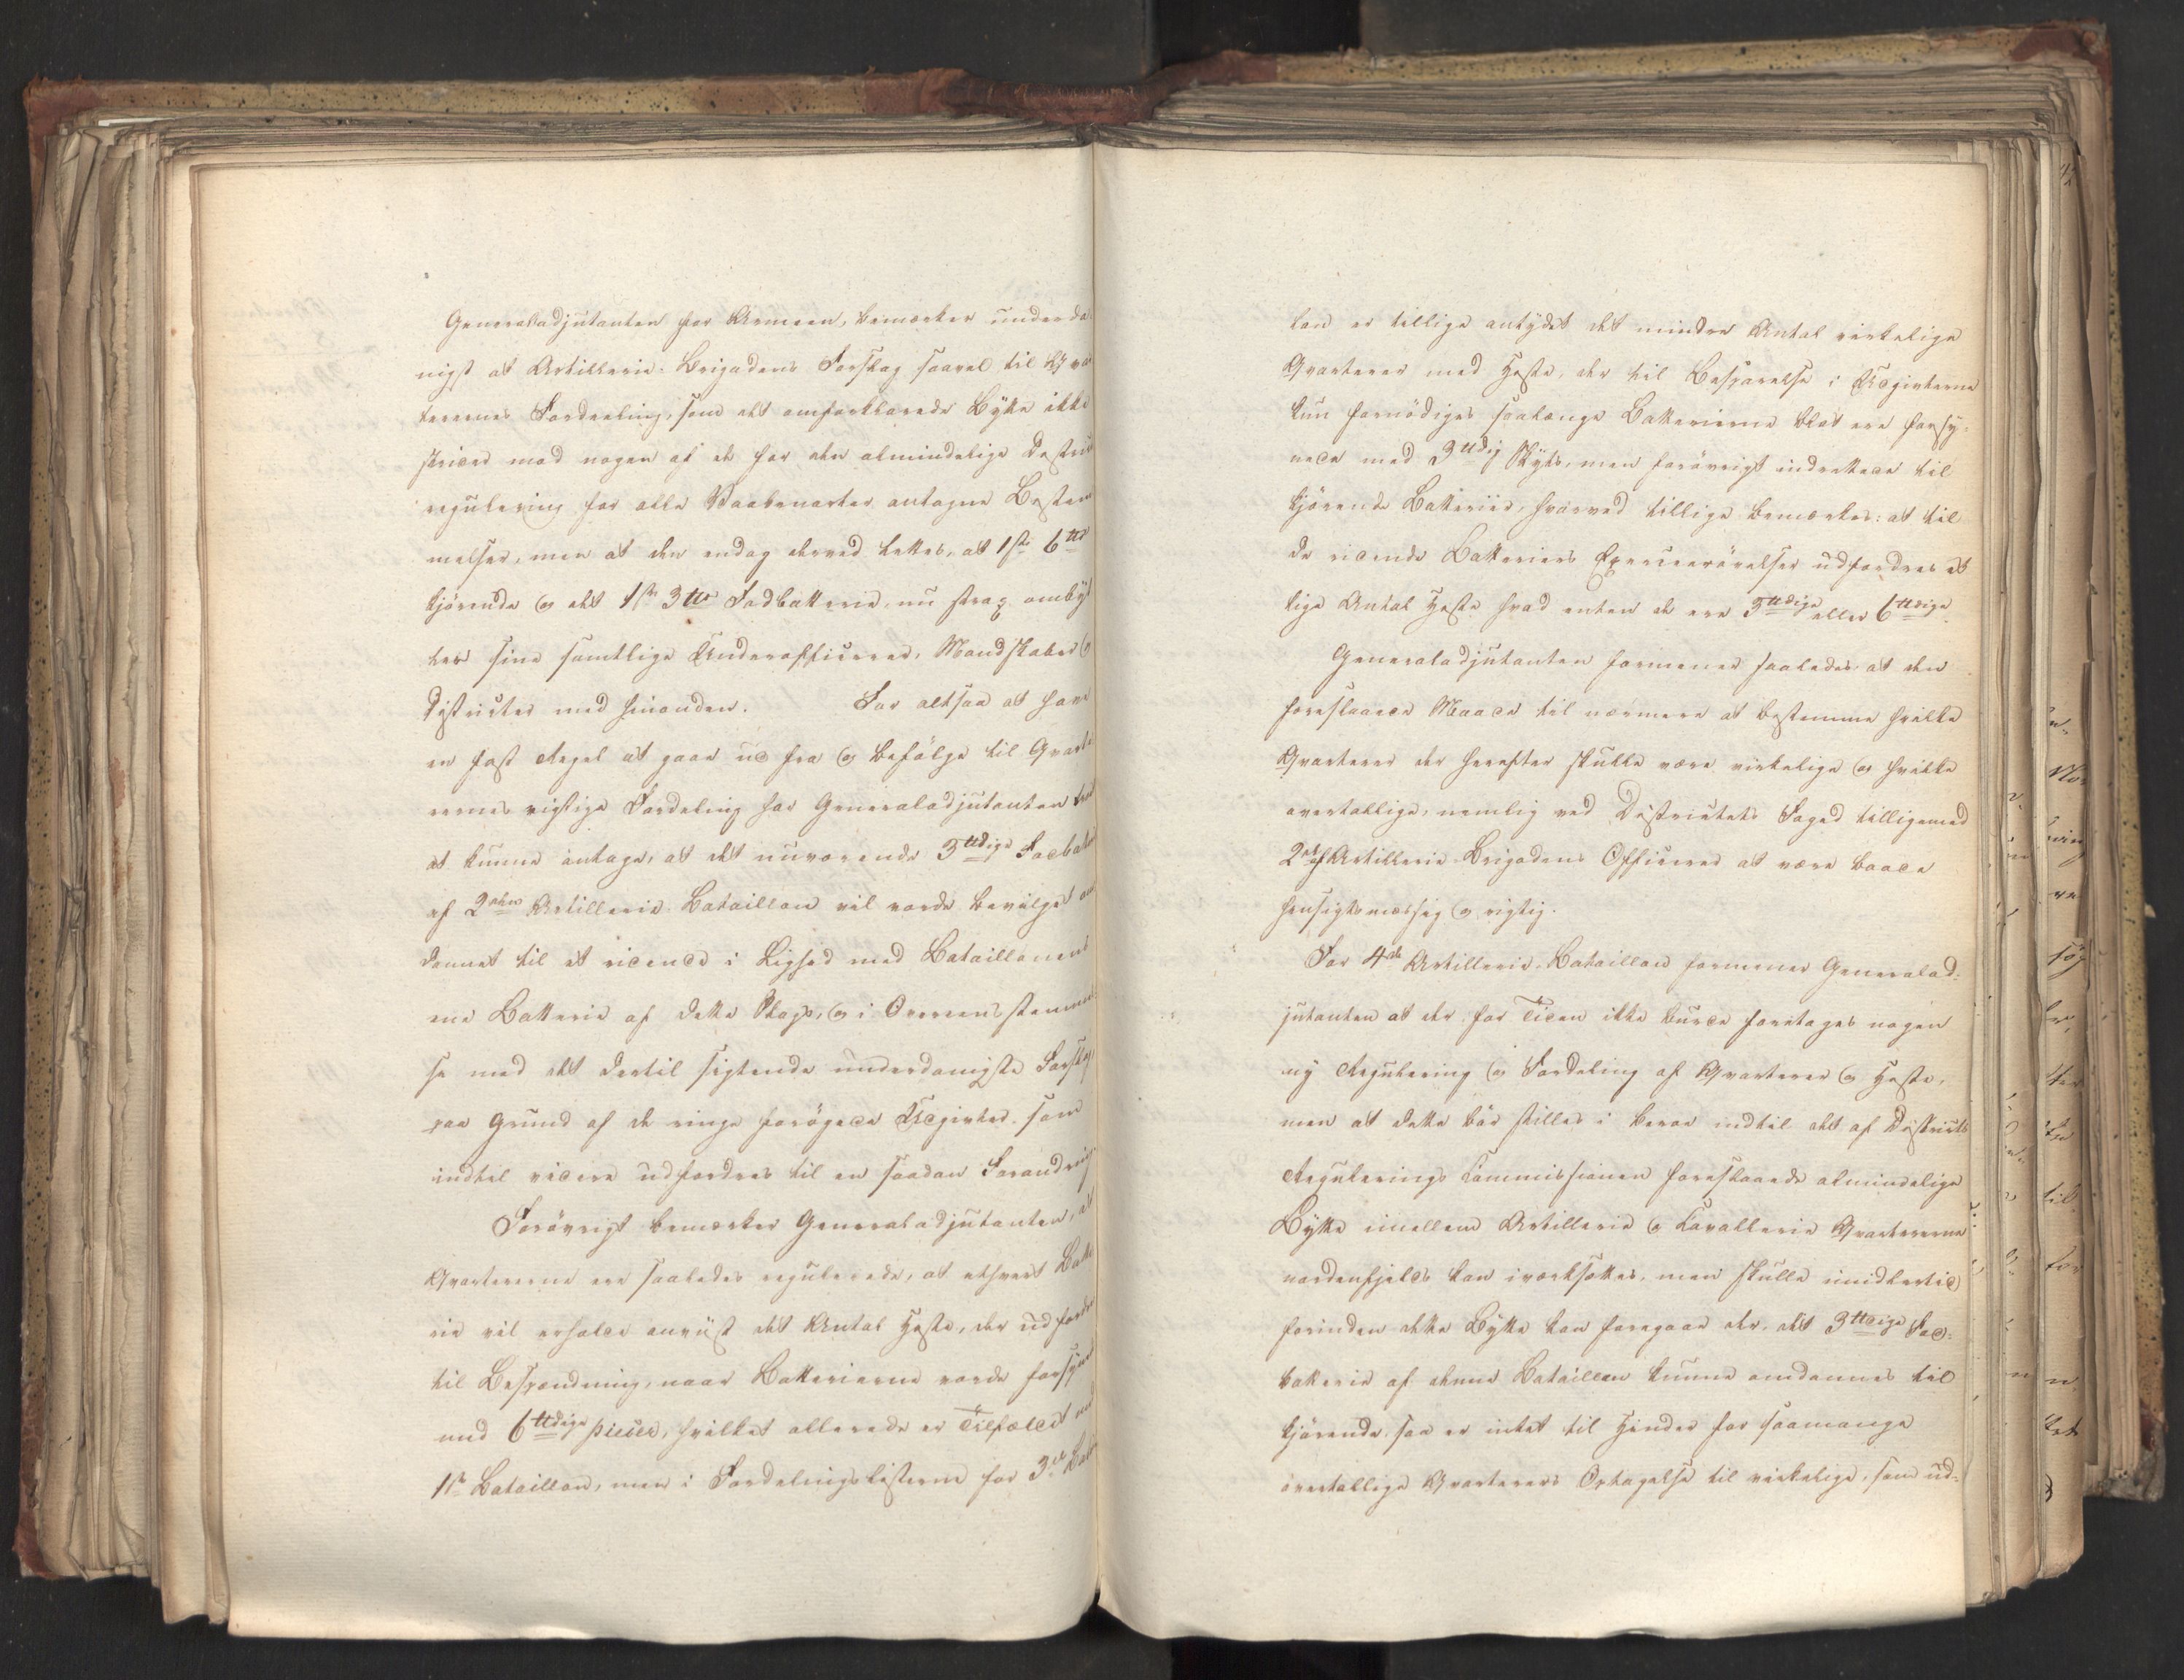 Generaladjutanten for Armeen, bemærker underda-
nigst at Artillerie-Brigadens Forslag saavel til Qvar
terernes Fordeeling, som det omforklarede Bytte ikke
strider mod nogen af de for den almindelige Destrict
regulering for alle Vaabenarter antagne Bestem
melser, men at den endog derved lettes, at 1ste 6ttes
kjørende og det 1ste 3ttes Fodbatterie, nu strax ombyt
ter sine samtlige Underofficerer, Mandskaber og
Districter med hinanden. For altsaa at have
en fast Regel at gaae ud fra og befølge til Qvarte
rernes rigtige Fordeling har Generaladjutanten
at kunne antage, at det nuværende 3ttdige Fodbatterie
af 2den Artillerie Bataillon vil vorde bevilget om
dannet til et ridende i Lighed med Bataillonens
ene Batterie af dette Slags, og i Overeensstemmel
se med det dertil sigtende underdanigste Forslag
paa Grund af de ringe forøgede Udgivter, som
indtil videre udfordres til en saadan Forandring
Forøvrigt bemærker Generaladjutanten, at
Qvartererne ere saaledes regulerede, at ethvert Batte
rie vil erholde anviist det Antal Heste, der udfordres
til Bespændning, naar Batterierne vorde forsynet
med 6ttdige pieces, hvilket allerede er Tilfældet ved
1ste Bataillon, men i Fordelingslisterne for 3de Batl
lon er tillige antydet det mindre Antal virkelige
Qvarterer med Heste, der til Besparelse i Udgivterne
kun fornødiges saalænge Batterierne blot ere forsy-
nede med 3ttdig Skyts, men forøvrigt indrettede til
kjørende Batterier, hvorved tillige bemærkes: at til
de ridende Batteriers Exerceerøvelser udfordres et
lige Antal Heste hvad enten de ere 3ttdige eller 6ttdige.
Generaladjutanten formener saaledes at den
foreslaaede Maade til nærmere at bestemme hvilke
Qvarterer der herefter skulle være virkelige og hvilke
overtallige, nemlig ved Districtets Foged tilligemed
2de af Artillerie-Brigadens Officerer at være baade
hensigtsmæssig og rigtig.
For 4de Artillerie-Bataillon formener Generalad-
jutanten at der for Tiden ikke burde foretages nogen
ny Regulering og Fordeling af Qvarterer og Heste,
men at dette bør stilles i beroe indtil det af Districts
Regulerings Commissionen foreslaaede almindelige
Bytte imellem Artillerie og Cavallerie Qvartererne
nordenfjelds kan iværksættes, men skulle imidlertid
forinden dette Bytte kan foregaae der, det 3ttdige Fod-
batterie af denne Bataillon kunne omdannes til
kjørende, saa er intet til Hinder for saamange
overtallige Qvarterers Optagelse til virkelige, som ud-